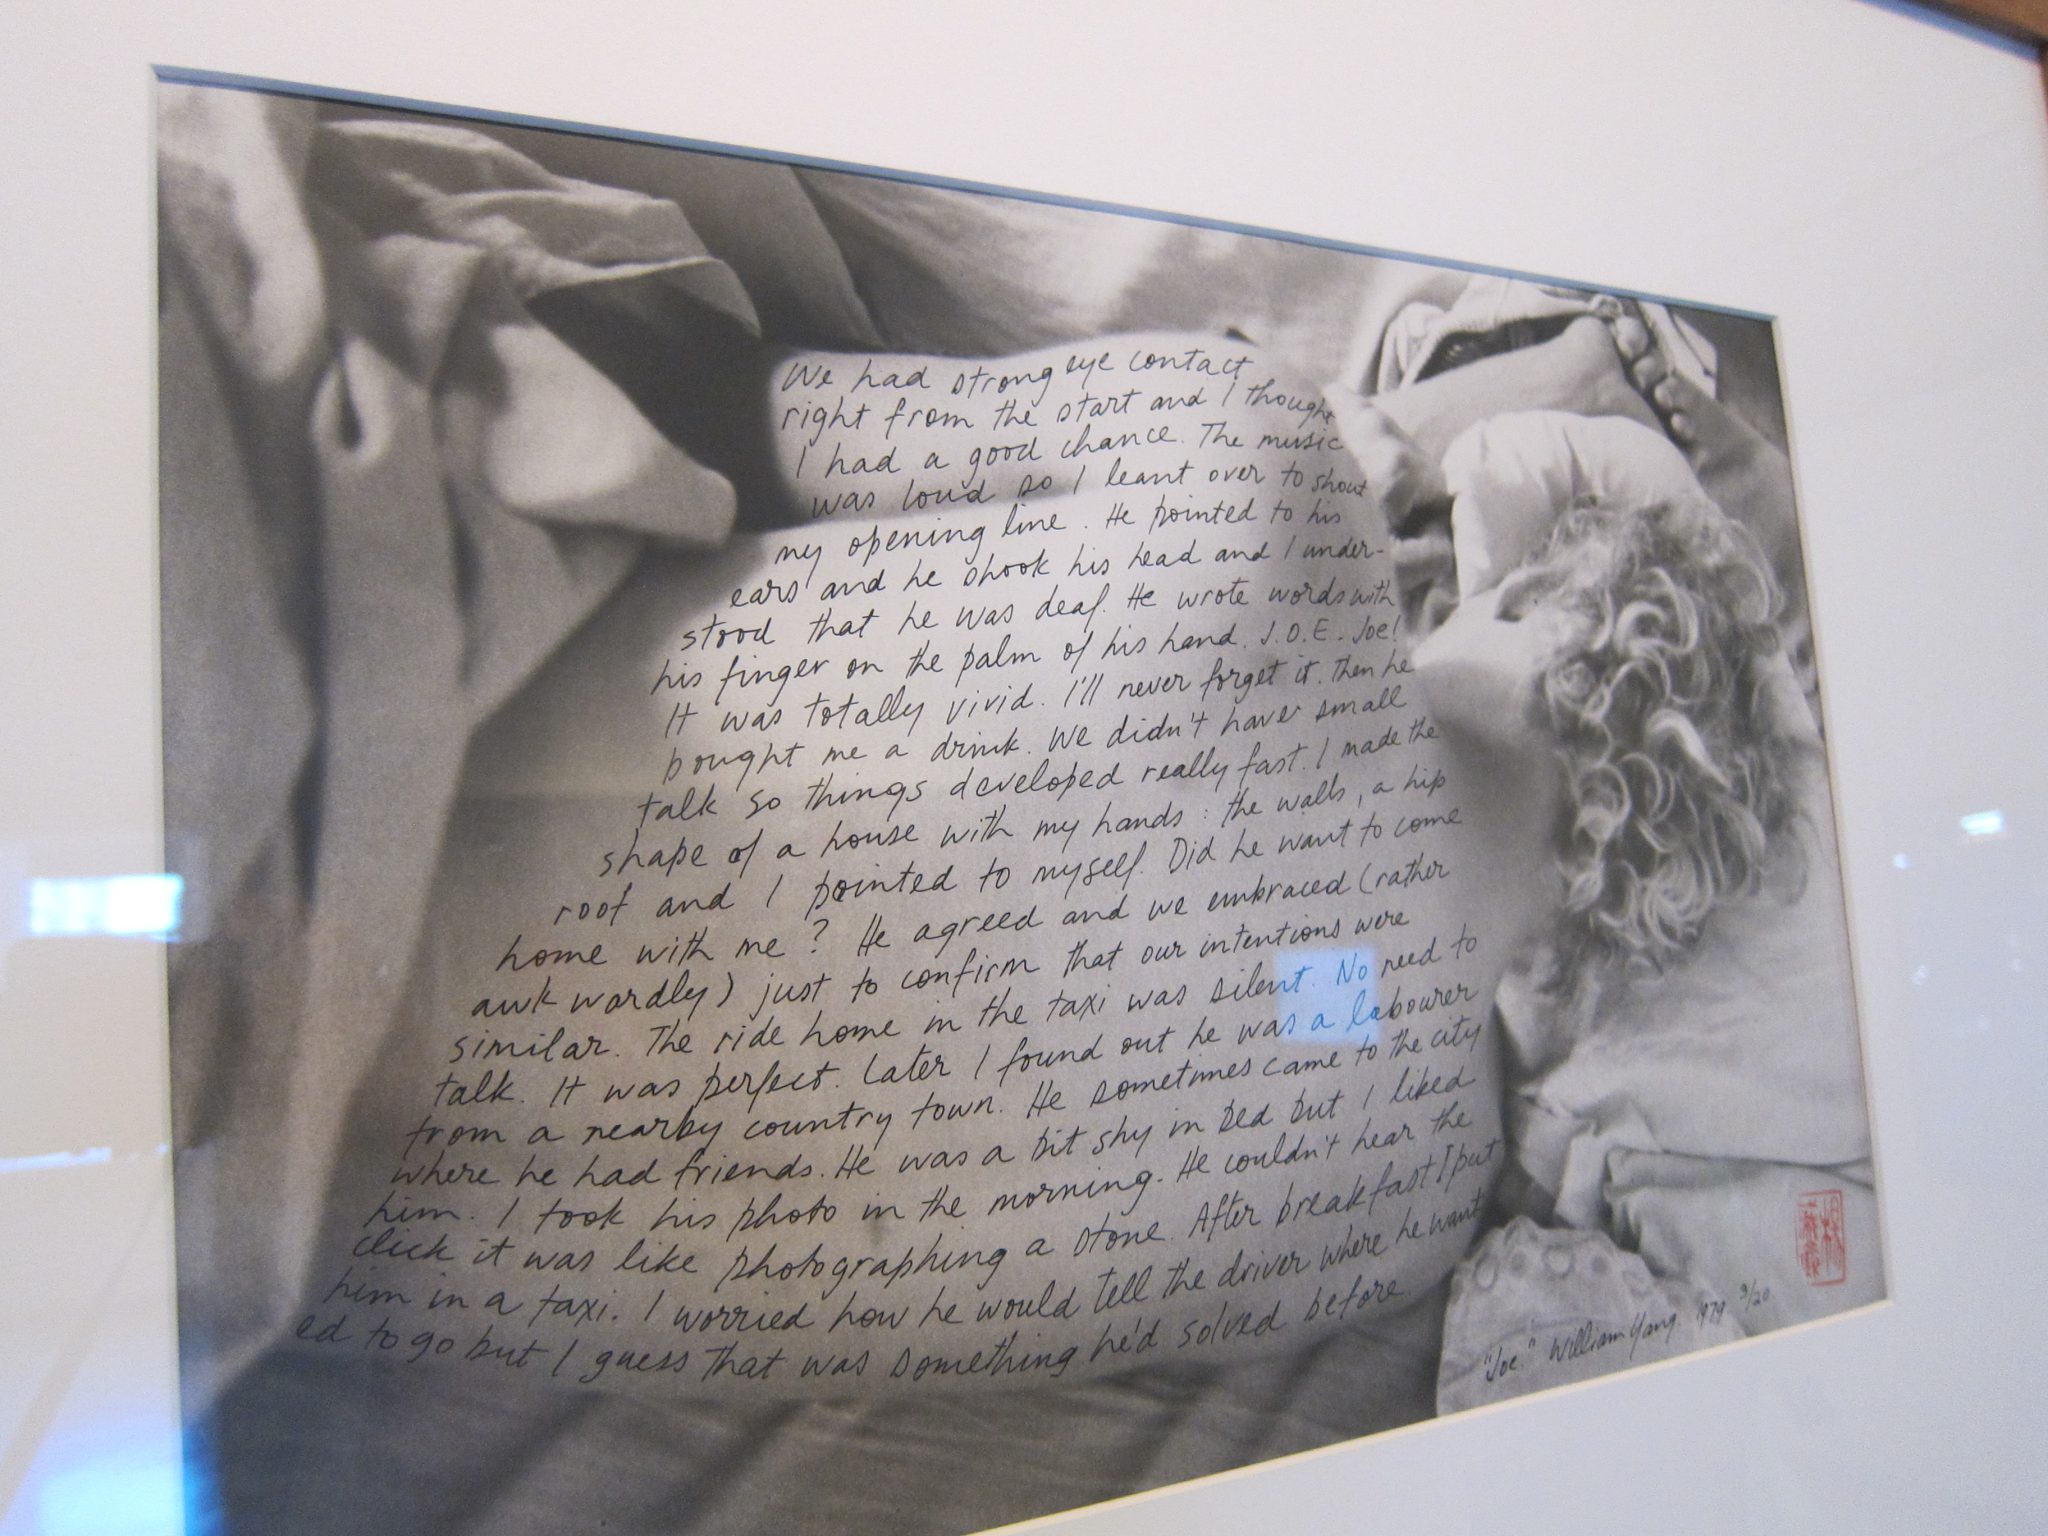 We had strong eye contact
right from the start and I thought
I had a good chance. The music
was loud so I leant over to shout
my opening line. He pointed to his
ears and he shook his head and I under-
stood that he was deaf. He wrote words with
his finger on the palm of his hand. J.O.E. Joe!
It was totally vivid. I'll never forget it. Then he
bought me a drink. We didn't have small
talk so things developed really fast. I made the
shape of a house with my hands: the walls, a hip
roof and I pointed to myself. Did he want to come
home with me? He agreed and we embraced (rather
awkwardly) just to confirm that our intentions were
similar. The ride home in the taxi was silent. No need to
talk. It was perfect. Later I found out he was a labourer
from a nearby country town. He sometimes came to the city
where he had friends. He was a bit shy in bed but I liked
him. I took his photo in the morning. He couldn't hear the
click it was like photographing a stone. After breakfast I put
him in a taxi. I worried how he would tell the driver where he want
ed to go but I guess that was something he'd solved before.
"Joe." William Yang. 1979 9/20